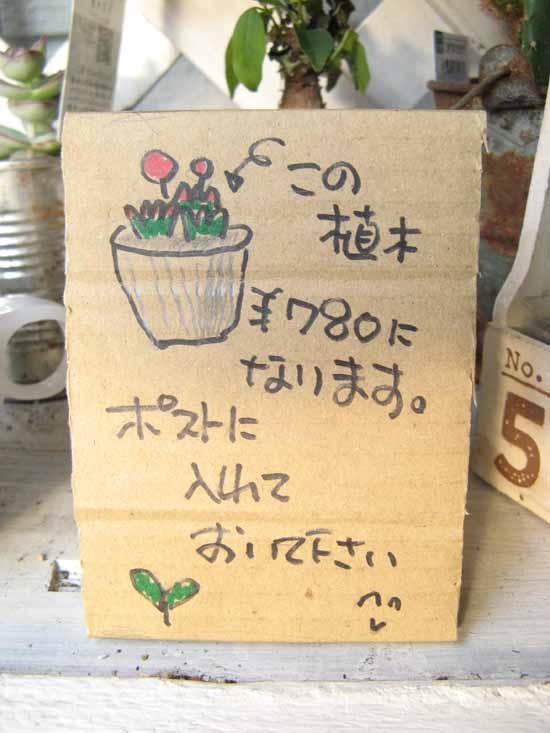 この
植木
¥780に
なります。
ポストに
入れて
おいて下さい
No.
5